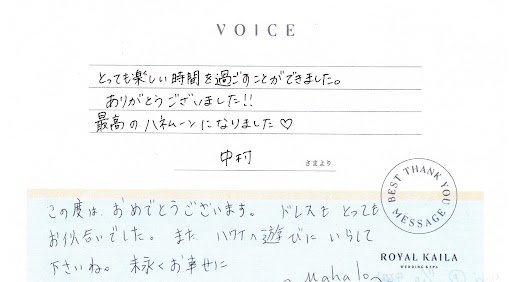 VOICE
とっても楽しい時間を過ごすことができました。
ありがとうございました!!
最高のハネムーンになりました♡
中村 さまより
この度は、おめでとうございます。 ドレスも とっても
お似合いでした。 また ハワイへ遊びに いらして
下さいね。 末永くお幸せに
Mahalo
BEST THANK YOU MESSAGE
ROYAL KAILA
WEDDING & SPA